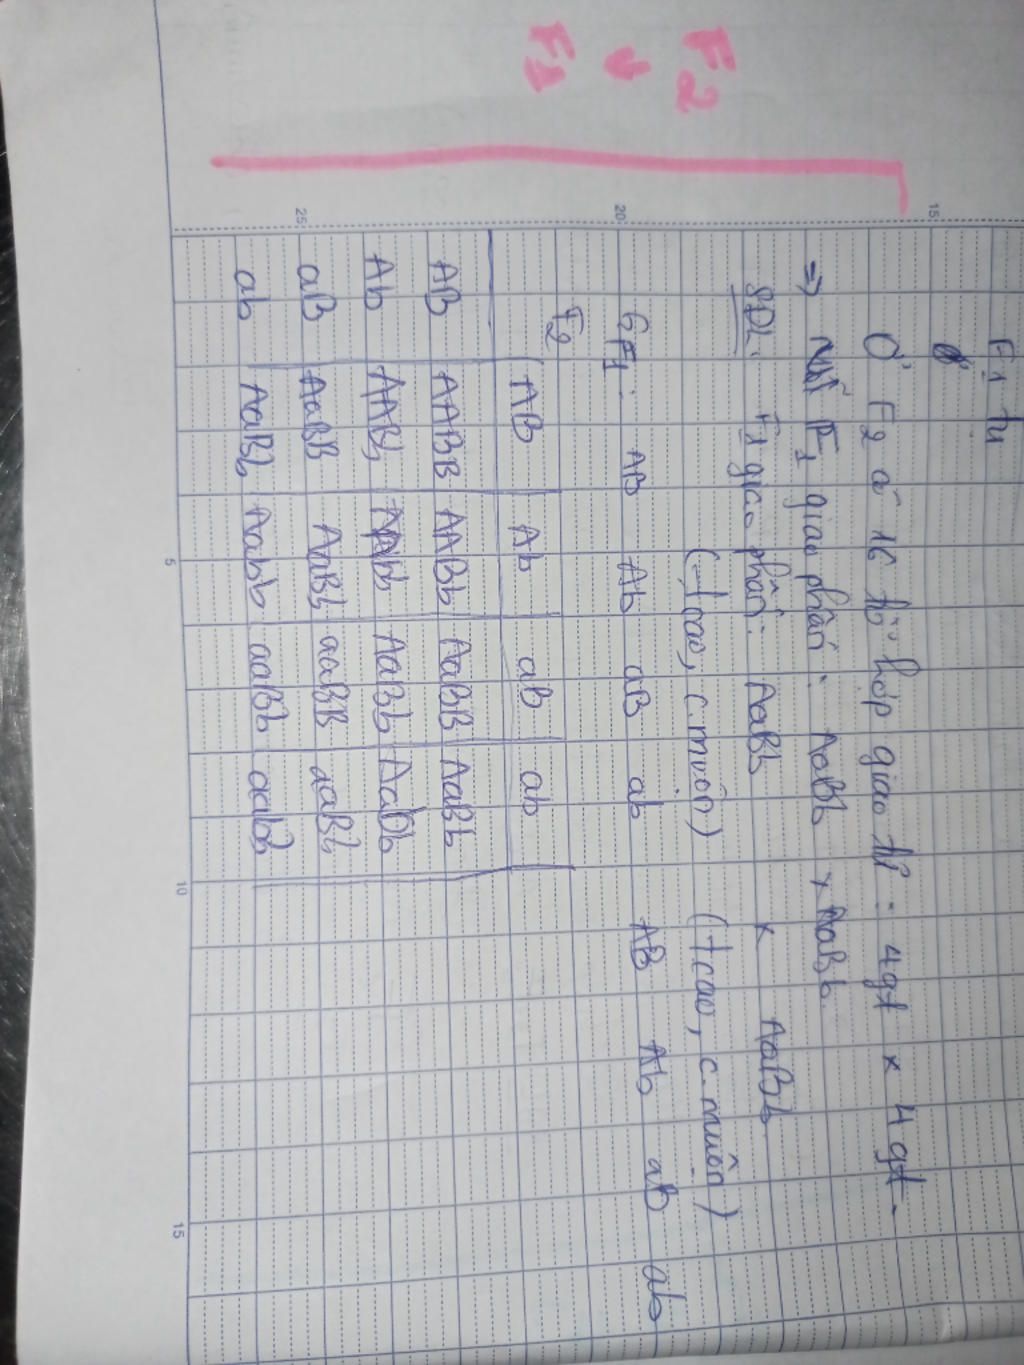 F2
↓
F1
F1
Ở F2 có 16 tổ hợp giao tử: 4gt x 4gt.
=> F1 giao phấn: AaBb x AaBb.
SĐL: F1 giao phấn: AaBb x AaBb
(tcao, c.muộn) (tcao, c.muộn)
GF1: AB Ab aB ab AB Ab aB ab
F2
AB Ab aB ab
AB AABB AABb AaBB AaBb
Ab AABb AAbb AaBb Aabb
aB AaBB AaBb aaBB aaBb
ab AaBb Aabb aaBb aabb
15
20
25
5
10
15